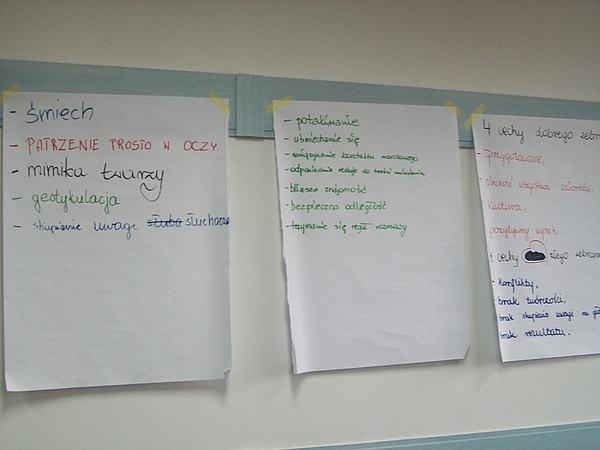 - śmiech
- PATRZENIE PROSTO W OCZY
- mimika twarzy
- gestykulacja
- skupienie uwagi słucha
- potakiwanie
- uśmiechanie się
- nawiązywanie kontaktu wzrokowego
- odpowiednie reakcje do treści
- bliższa znajomość
- bezpieczna odległość
- trzymanie się reguł rozmowy
4 cechy dobrego zebra
- przygotowane,
- obecność wszystkich członków,
- kultura,
pozytywny wynik
4 cechy złego zebrania
- konflikty,
- brak twórczości,
- brak skupienia uwagi na
- brak rezultatu.